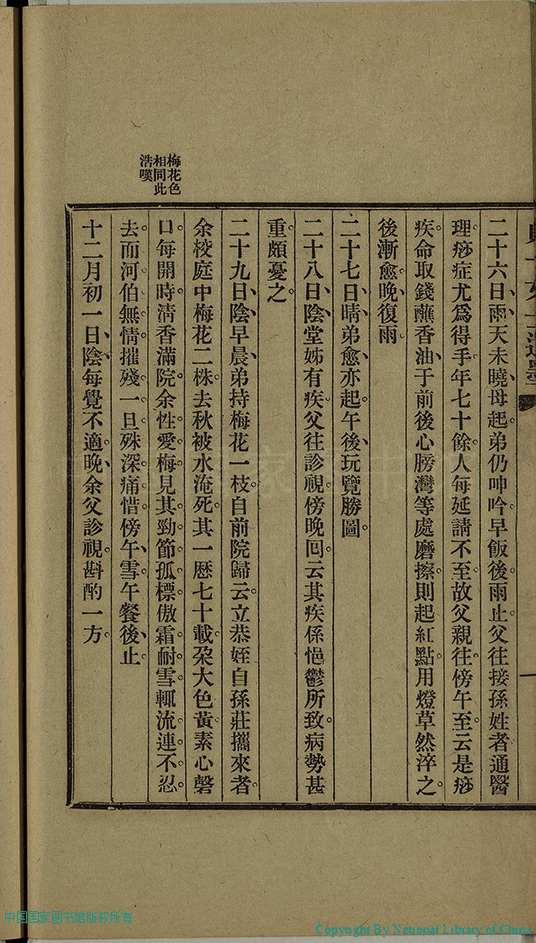 二十六日雨天未曉母起弟仍呻吟早飯後雨止父往接孫姓者通醫
理痧症尤爲得手年七十餘人每延請不至故父親往傍午至云是痧
疾命取錢蘸香油于前後心膀灣等處磨擦則起紅點用燈草然淬之
後漸愈晚復雨
二十七日晴弟愈亦起午後玩覽勝圖
二十八日陰堂姊有疾父往診視傍晚囘云其疾係悒鬱所致病勢甚
重頗憂之
二十九日陰早晨弟持梅花一枝自前院歸云立恭姪自孫莊攜來者
余校庭中梅花二株去秋被水淹死其一歷七十載朶大色黃素心磬
口每開時清香滿院余性愛梅見其勁節孤標傲霜耐雪輒流連不忍
去而河伯無情摧殘一旦殊深痛惜傍午雪午餐後止
十二月初一日陰每覺不適晚余父診視斟酌一方
梅花色
相同此
浩嘆
中国国家图书馆版权所有
Copyright By National Library of China